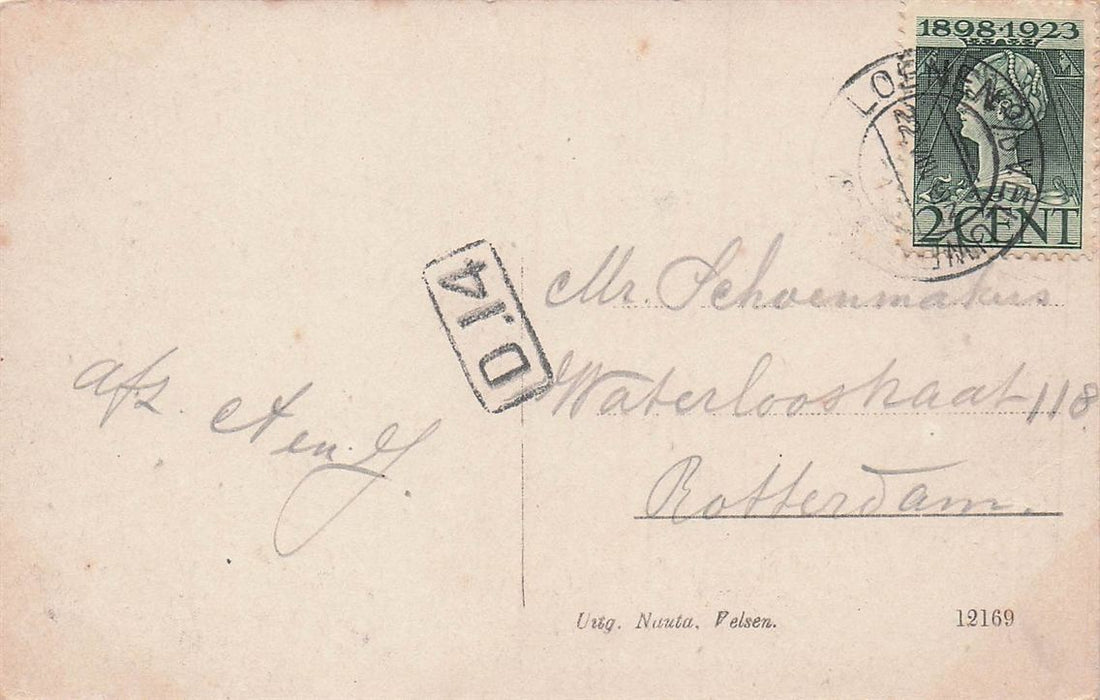 1898·1923
2 CENT
LOENEN O/D VELUWE
D.14
Mr. Schoenmakers
Waterloostraat 118
Rotterdam.
afz. A en J
Uitg. Nauta, Velsen.
12169